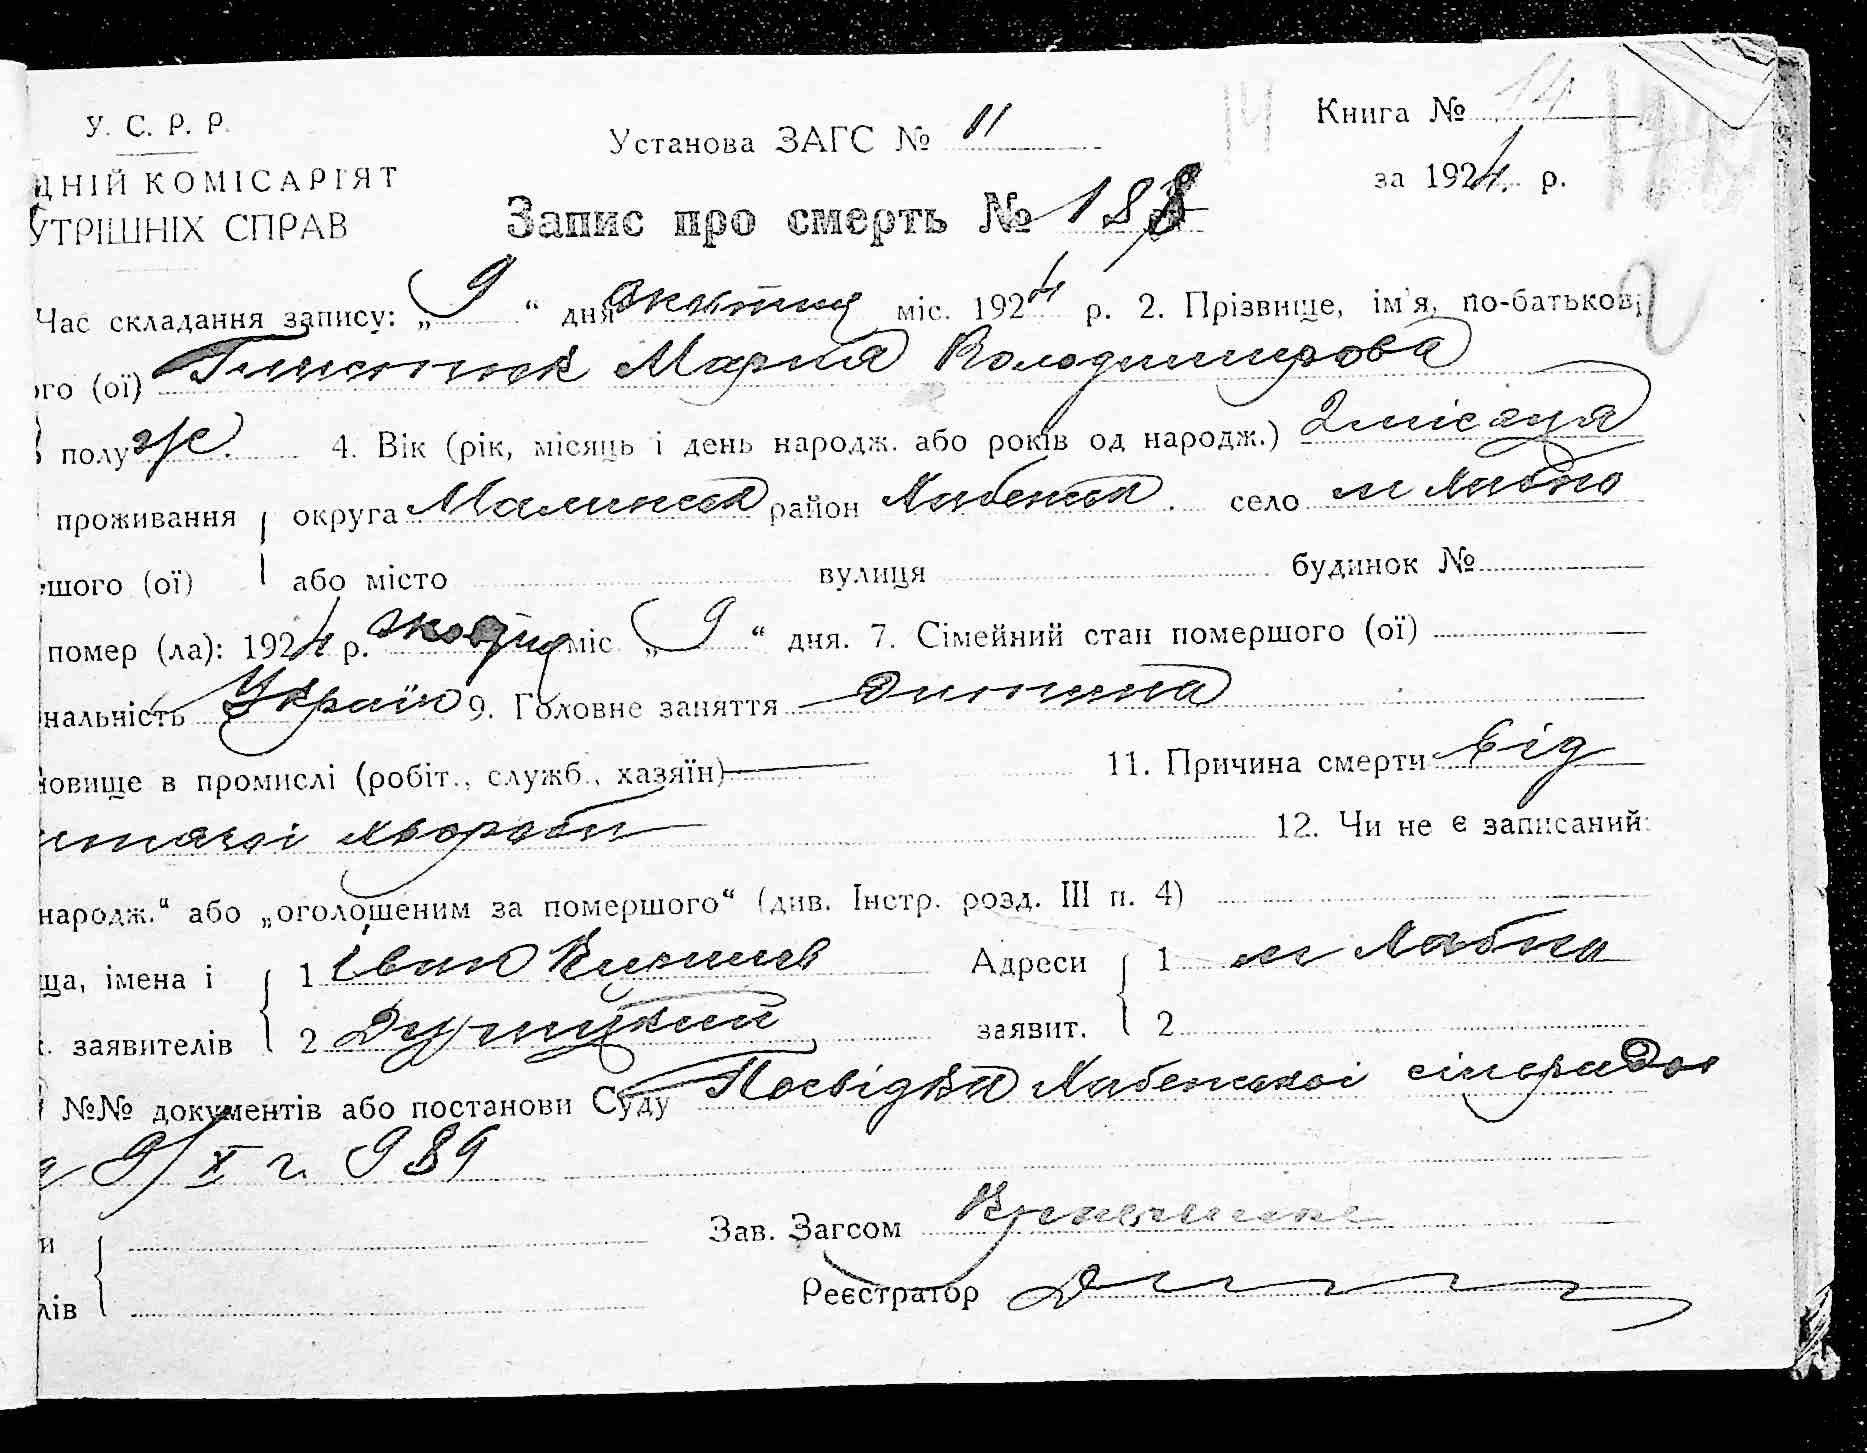 У. С. Р. Р.
Установа ЗАГС № 11
Книга № 14
ДНІЙ КОМІСАРІЯТ
за 1924 р.
УТРІШНІХ СПРАВ
Запис про смерть № 188
Час складання запису: „ 9 “ дня жовтня міс. 1924 р. 2. Прізвище, ім'я, по-батькові
ого (ої) Марія Володимирова
полу ж. 4. Вік (рік, місяць і день народж. або років од народж.) 2 місяця
проживання округа Малинськ район село м
шого (ої) або місто вулиця будинок №
помер (ла): 1924 р. жовтня міс. „ 9 “ дня. 7. Сімейний стан помершого (ої)
нальність Україн 9. Головне заняття дитина
новище в промислі (робіт., служб., хазяїн) 11. Причина смерти від
хвороби 12. Чи не є записаний:
народж.“ або „оголошеним за помершого“ (див. Інстр. розд. III п. 4)
ща, імена і 1 Іван Адреси 1 м
. заявителів 2 заявит. 2
№№ документів або постанови Суду Посвідка сільради
9/X г. 989
и Зав. Загсом
лів Реєстратор